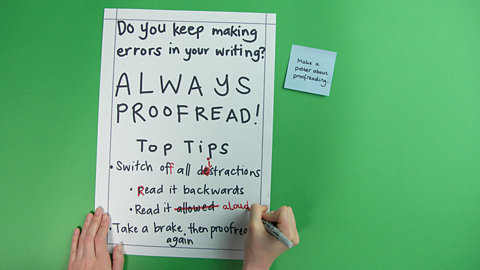 Do you keep making
errors in your writing?
ALWAYS
PROOFREAD!
Top Tips
• Switch off all distractions
• Read it backwards
• Read it allowed aloud
• Take a brake, then
again
Make a
poster about
proofreading.